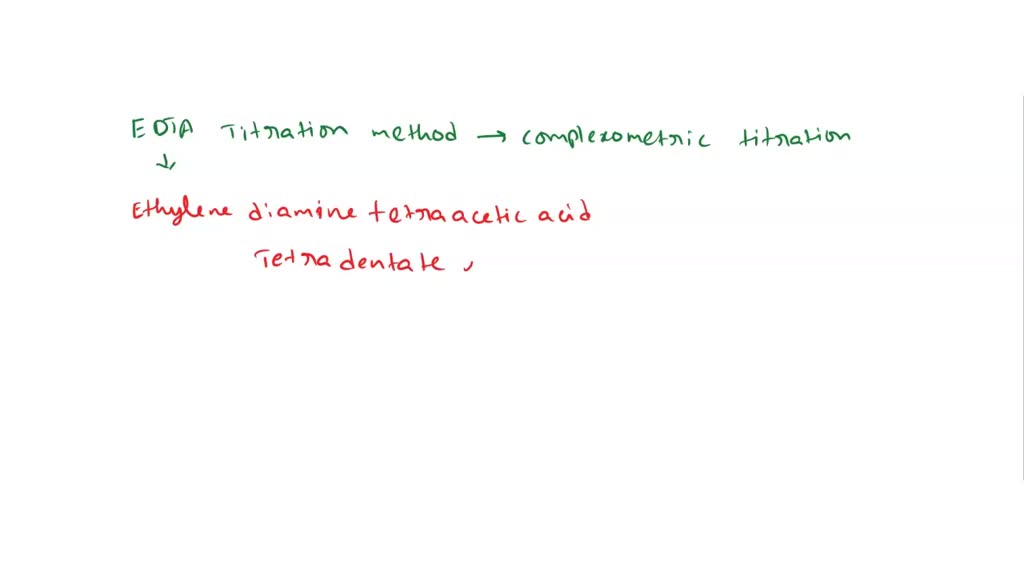 EDTA Titration method → complexometric titration
↓
Ethylene diamine tetraacetic acid
Tetradentate ,